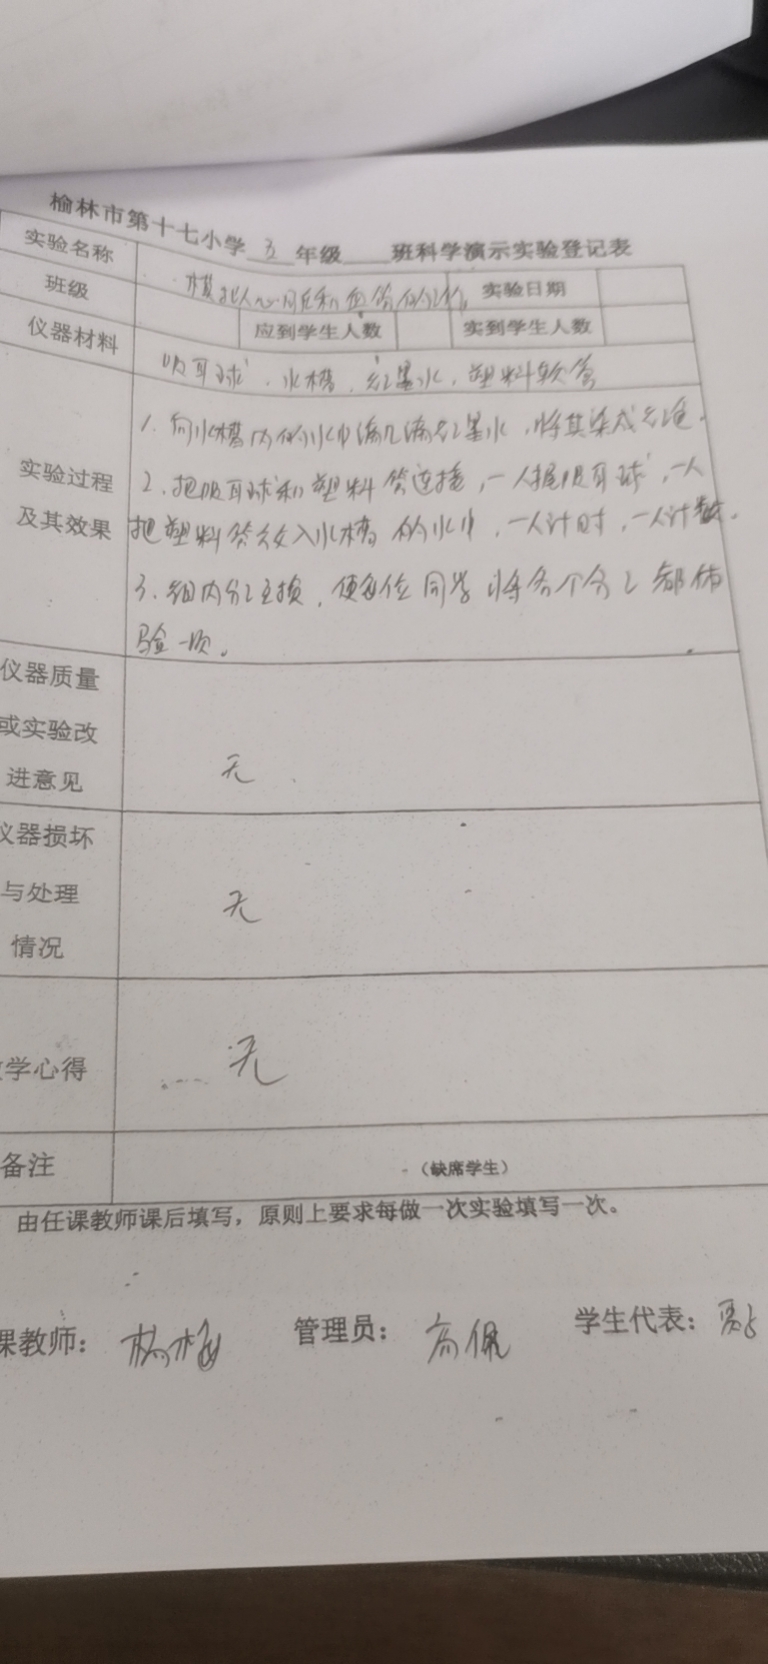 榆林市第十七小学 五 年级 班科学演示实验登记表
实验名称 模拟心脏和血管的工作
班级 实验日期
仪器材料 应到学生人数 实到学生人数
吸耳球、水槽、红墨水、塑料软管
实验过程
及其效果
1、向水槽内的水中滴几滴红墨水,将其染成红色。
2、把吸耳球和塑料管连接,一人握吸耳球,一人
把塑料管放入水槽的水中,一人计时,一人计数。
3、组内分工互换,使每位同学将各个分工都体
验一次。
仪器质量
或实验改
进意见
无
仪器损坏
与处理
情况
无
学心得
无
备注 (缺席学生)
由任课教师课后填写,原则上要求每做一次实验填写一次。
课教师: 杨梅 管理员: 高佩 学生代表: